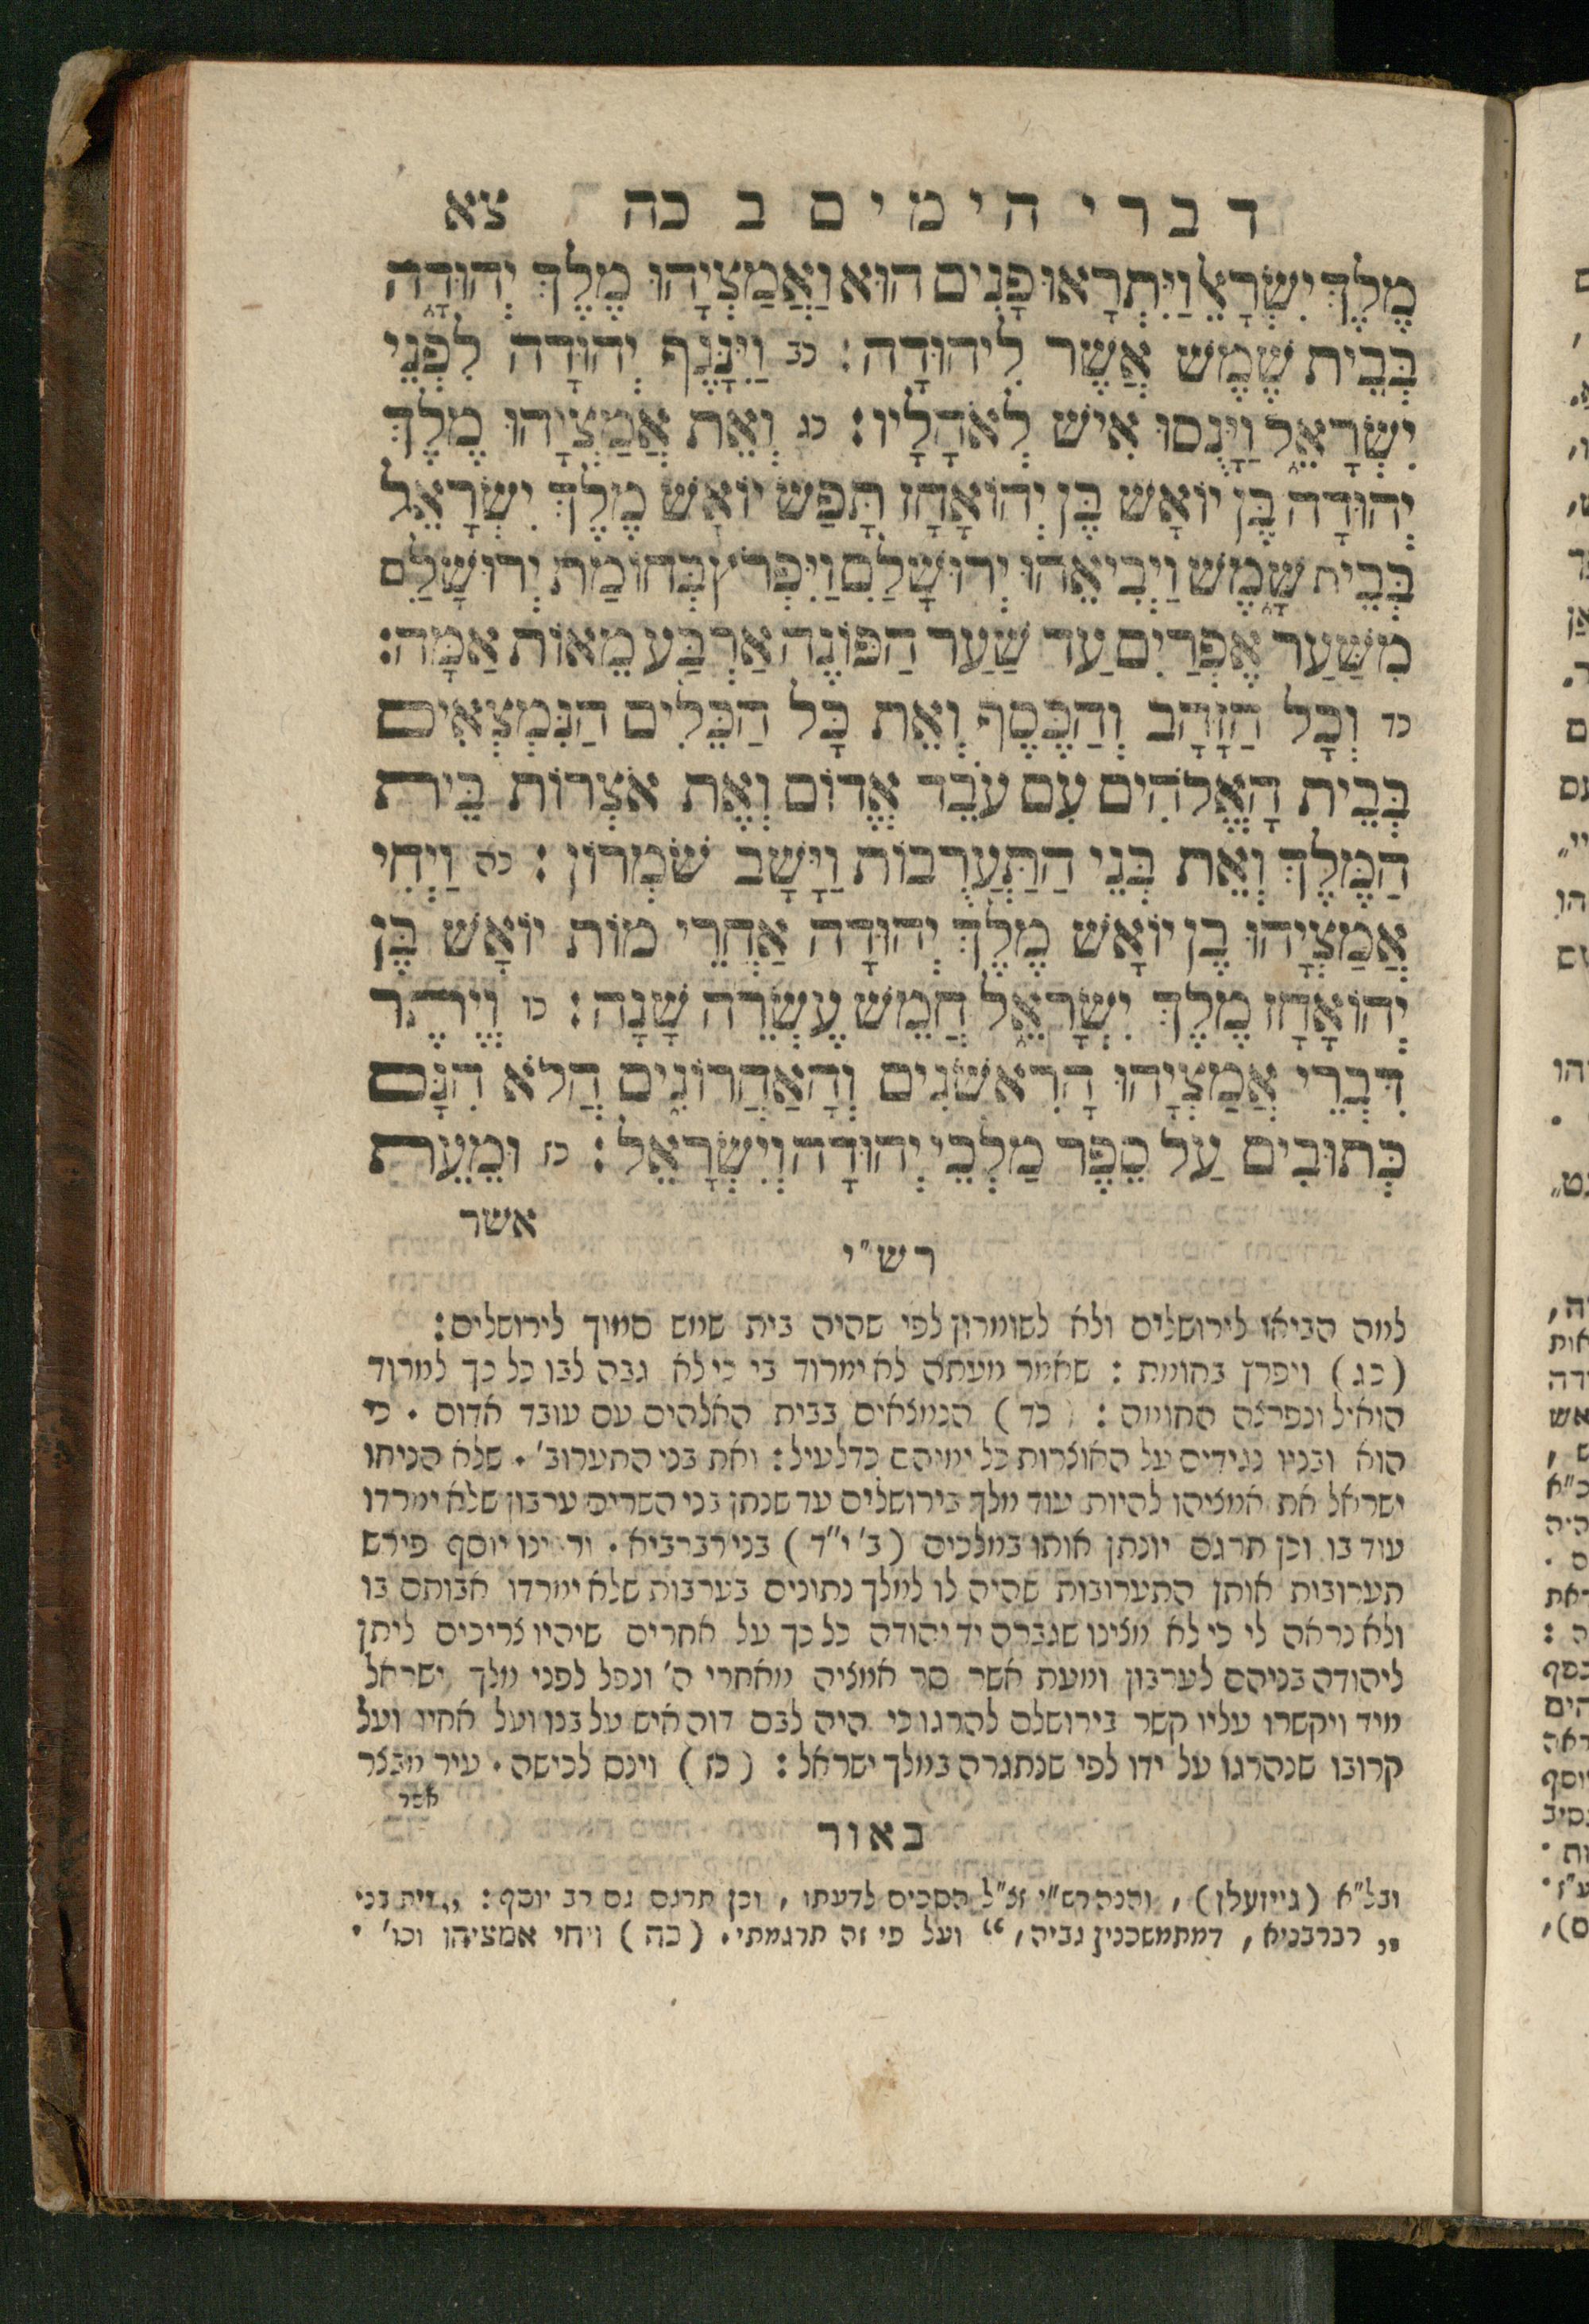 דברי הימים ב כה צא
מֶלֶךְ יִשְׂרָאֵל וַיִּתְרָאוּ פָנִים הוּא וַאֲמַצְיָהוּ מֶלֶךְ יְהוּדָה
בְּבֵית שֶׁמֶשׁ אֲשֶׁר לִיהוּדָה: כב וַיִּנָּגֶף יְהוּדָה לִפְנֵי
יִשְׂרָאֵל וַיָּנֻסוּ אִישׁ לְאֹהָלָיו: כג וְאֵת אֲמַצְיָהוּ מֶלֶךְ
יְהוּדָה בֶּן יוֹאָשׁ בֶּן יְהוֹאָחָז תָּפַשׂ יוֹאָשׁ מֶלֶךְ יִשְׂרָאֵל
בְּבֵית שָׁמֶשׁ וַיְבִיאֵהוּ יְרוּשָׁלַםִ וַיִּפְרֹץ בְּחוֹמַת יְרוּשָׁלַםִ
מִשַּׁעַר אֶפְרַיִם עַד שַׁעַר הַפּוֹנֶה אַרְבַּע מֵאוֹת אַמָּה:
כד וְכָל הַזָּהָב וְהַכֶּסֶף וְאֵת כָּל הַכֵּלִים הַנִּמְצְאִים
בְּבֵית הָאֱלֹהִים עִם עֹבֵד אֱדוֹם וְאֶת אֹצְרוֹת בֵּית
הַמֶּלֶךְ וְאֵת בְּנֵי הַתַּעֲרֻבוֹת וַיָּשָׁב שֹׁמְרוֹן: כה וַיְחִי
אֲמַצְיָהוּ בֶן יוֹאָשׁ מֶלֶךְ יְהוּדָה אַחֲרֵי מוֹת יוֹאָשׁ בֶּן
יְהוֹאָחָז מֶלֶךְ יִשְׂרָאֵל חֲמֵשׁ עֶשְׂרֵה שָׁנָה: כו וְיֶתֶר
דִּבְרֵי אֲמַצְיָהוּ הָרִאשֹׁנִים וְהָאַחֲרוֹנִים הֲלֹא הִנָּם
כְּתוּבִים עַל סֵפֶר מַלְכֵי יְהוּדָה וְיִשְׂרָאֵל: כז וּמֵעֵת
אשר
רש"י
למה הביאו לירושלים ולא לשומרון לפי שהיה בית שמש סמוך לירושלים:
(כג) ויפרץ בחומת: שאמר מעתה לא ימרוד בי כי לא גבה לבו כל כך למרוד
הואיל ונפרצה החומה: (כד) הנמצאים בבית האלהים עם עובד אדום. כי
הוא ובניו נגידים על האוצרות כל ימיהם כדלעיל: ואת בני התערוב'. שלא הניחו
ישראל את אמציהו להיות עוד מלך בירושלים עד שנתן בני השרים ערבון שלא ימרדו
עוד בו וכן תרגם יונתן אותו במלכים (ב' י"ד) בני רברביא. יוסף פירש
תערובות אותן התערובות שהיה לו למלך נתונים בערבות שלא ימרדו אבותם בו
ולא נראה לי כי לא מצינו שגברה יד יהודה כל כך על אחרים שיהיו צריכים ליתן
ליהודה בניהם לערבון ומעת אשר סר אמציה מאחרי ה' ונפל לפני מלך ישראל
מיד ויקשרו עליו קשר בירושלם להרגו כי היה לבם דוה איש על בנו ועל אחיו ועל
קרובו שנהרגו על ידו לפי שנתגרה במלך ישראל: (כז) וינס לכישה. עיר מבצר
אשר
באור
ובל"א (גייזעלן), והנה רש"י ז"ל הסכים לדעתו, וכן תרגם גם רב יוסף: „וית בני
„רברבניא, דמתמשכנין גביה,“ ועל פי זה תרגמתי. (כה) ויחי אמציהו וכו'.